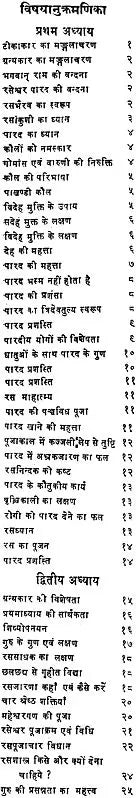 विषयानुक्रमणिका
प्रथम अध्याय
टीकाकार का मङ्गलाचरण १
ग्रन्थकार का मङ्गलाचरण २
भगवान् राम की वन्दना २
रसेश्वर पारद की वन्दना २
रसभैरव का स्वरूप २
रसांकुशी का ध्यान ३
पारद का ध्यान ४
कौलों को नमस्कार ४
मीमांस एवं वारुणी की निरुक्ति ४
कौल की परिभाषा ५
पाखण्डी कौल ५
विदेह मुक्ति के उपाय ५
सदेह मुक्ति के लक्षण ६
विदेह मुक्ति के लक्षण ६
देह की महत्ता ६
पारद की महत्ता ७
पारद भस्म नहीं होता है ८
पारद की प्रशंसा ८
पारद का त्रिदेवतुल्य स्वरूप ८
पारद प्रशस्ति ९
पारदीय योगों की विशेषता ९
धातुओं के साथ पारद के गुण १०
पारद प्रशस्ति १०
पारद प्रशस्ति ११
रस माहात्म्य ११
पारद की पञ्चविध पूजा ११
पारद खाने की महत्ता ११
पूजाकाल में कज्जली लेप से तुष्टि १२
पारद में अभ्रकजारण का फल १२
रसनिन्दक को कष्ट १२
पारद के कौतुकीय कार्य १३
वृत्तिकाली का लक्षण १३
रोगी को पारद देने का फल १३
रसध्यान १३
रस का पूजन १४
पारद प्रशस्ति १४
द्वितीय अध्याय
ग्रन्थकार की विशेषता १५
प्रथमाध्याय की सार्थकता १६
शिष्योपनयन १६
गुरु के गुण एवं लक्षण १७
रससाधक का लक्षण १८
छलछद्म से गृहीत विद्या १८
रसजारणा कहाँ एवं कैसे करें १८
चार श्रेष्ठ शक्तियाँ २०
महेश्वरण की पूजा २०
रसेश्वर पूजाक्रम एवं विधि २१
रसपूजाचार विधान २२
रसशास्त्र किसे और क्यों देना
चाहिये ? २४
गुरु की प्रसन्नता का महत्त्व २५